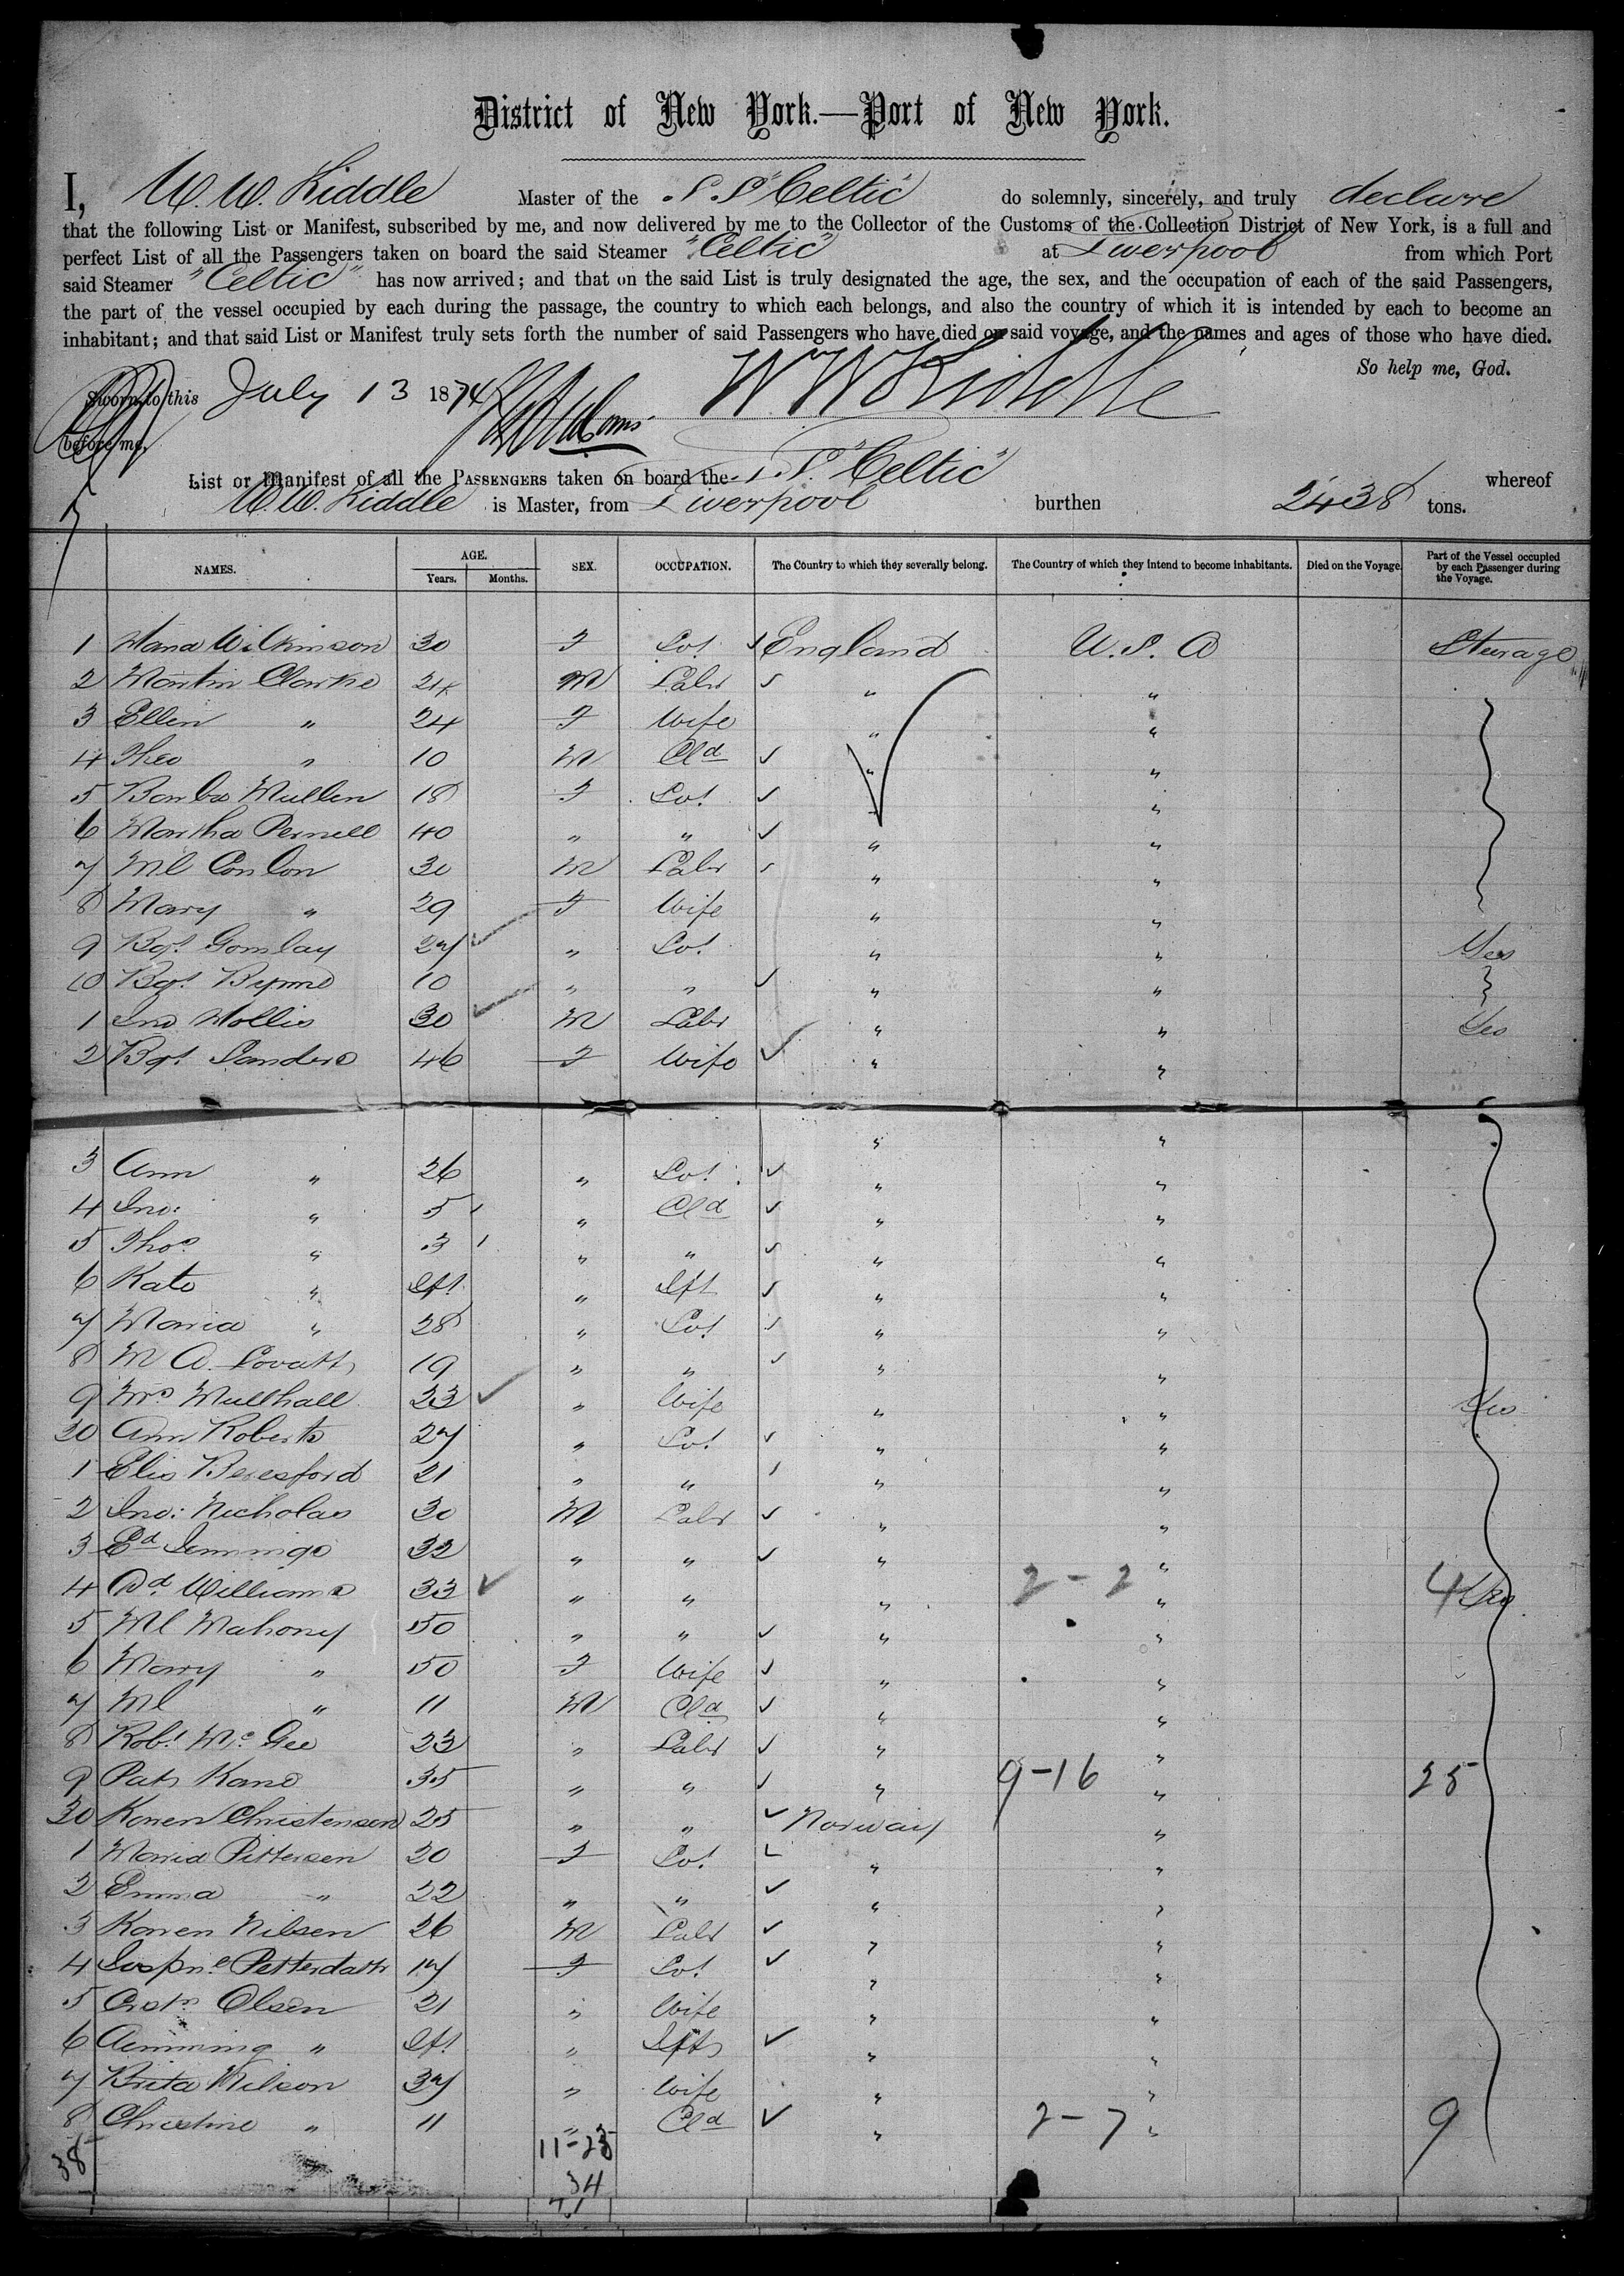 District of New York.—Port of New York.
I, W. W. Kiddle Master of the S. S "Celtic" do solemnly, sincerely, and truly declare
that the following List or Manifest, subscribed by me, and now delivered by me to the Collector of the Customs of the Collection District of New York, is a full and
perfect List of all the Passengers taken on board the said Steamer "Celtic" at Liverpool from which Port
said Steamer "Celtic" has now arrived; and that on the said List is truly designated the age, the sex, and the occupation of each of the said Passengers,
the part of the vessel occupied by each during the passage, the country to which each belongs, and also the country of which it is intended by each to become an
inhabitant; and that said List or Manifest truly sets forth the number of said Passengers who have died on said voyage, and the names and ages of those who have died.
So help me, God.
Sworn to this July 13 1874 W W Kiddle
before me,
List or Manifest of all the PASSENGERS taken on board the S. S. "Celtic" whereof
W. W. Kiddle is Master, from Liverpool burthen 2438 tons.
NAMES. AGE. Years. Months. SEX. OCCUPATION. The Country to which they severally belong. The Country of which they intend to become inhabitants. Died on the Voyage. Part of the Vessel occupied by each Passenger during the Voyage.
1 Hana Wilkinson 30 F Sp! England U. S. A Steerage
2 Martin Clarke 24 M Labr " "
3 Ellen " 24 F Wife " "
4 Theo " 10 M Cld " "
5 Barba Mullen 18 F Sp! "
6 Martha Pernell 40 " " " "
7 Ml Conlon 30 M Labr " "
8 Mary " 29 F Wife " "
9 Bgt Gomlay 27 " Sp! " " Yes
10 Bgt Byrne 10 " " " "
1 Jno Hollis 30 M Labr " " Yes
2 Bgt Sanders 46 F Wife " "
" "
3 Ann " 26 " Sp! " "
4 Jno: " 5 " Cld " "
5 Thos " 3 " " " "
6 Kate " Ift " Ift " "
7 Maria " 28 " Sp! " "
8 M A. Lovatt 19 " " " "
9 Mrs Mullhall 23 " Wife " " Yes
20 Ann Roberts 27 " Sp! " "
1 Elis Beresford 21 " " " "
2 Jno: Nicholas 30 M Labr " "
3 Ed Jennings 32 " " " "
4 Dd Williams 33 " " " 2-2 " 4 Yes
5 Ml Mahony 50 " " " "
6 Mary " 50 F Wife " "
7 Ml " 11 M Cld " "
8 Robt McGee 23 " Labr " "
9 Pat Kane 35 " " " 9-16 " 25
30 Karen Christensen 25 " " Norway "
1 Maria Pittersen 20 F Sp! " "
2 Emma " 22 " " " "
3 Karen Nilsen 26 M Labr " "
4 Petterdatr 17 F Sp! " "
5 Olsen 21 " Wife " "
6 " Ift " Ift " "
7 Brita Nilson 37 " Wife " "
8 Christine " 11 " Cld " 2-7 " 9
38 11-23
34